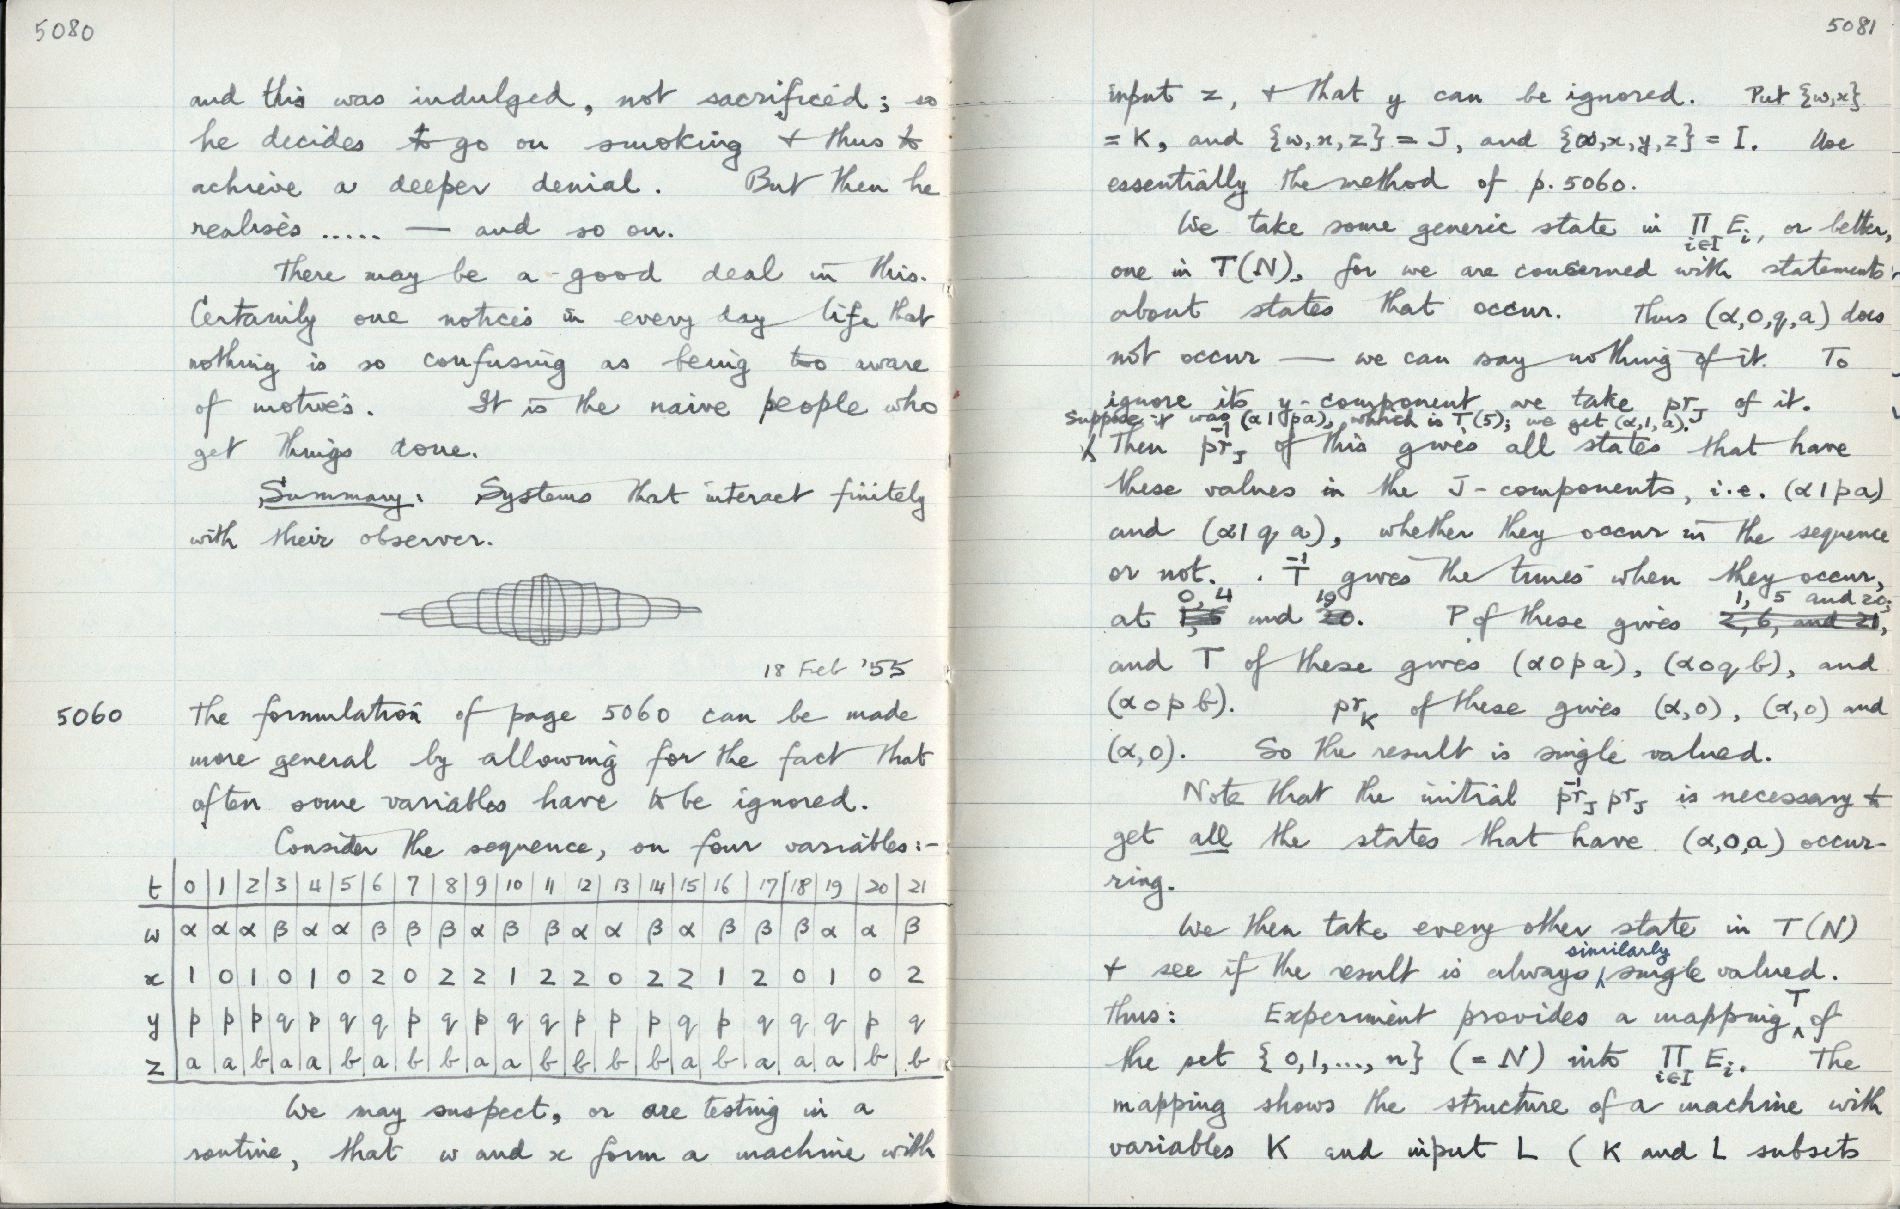 5080
and this was indulged, not sacrificed; so
he decides to go on smoking + thus to
achieve a deeper denial. But then he
realises ..... — and so on.
There may be a good deal in this.
Certainly one notices in every day life that
nothing is so confusing as being too aware
of motives. It is the naive people who
get things done.
Summary: Systems that interact finitely
with their observer.
18 Feb '55
5060 The formulation of page 5060 can be made
more general by allowing for the fact that
often some variables have to be ignored.
Consider the sequence, on four variables:-
t 0 1 2 3 4 5 6 7 8 9 10 11 12 13 14 15 16 17 18 19 20 21
w α α α β α α β β β α β β α α β α β β β α α β
x 1 0 1 0 1 0 2 0 2 2 1 2 2 0 2 2 1 2 0 1 0 2
y p p p q p q q p q p q q p p p q p q q q p q
z a a b a a b a b b a a b b b b a b a a a b b
We may suspect, or are testing in a
routine, that w and x form a machine with
5081
input z, + that y can be ignored. Put {w,x}
= K, and {w,x,z} = J, and {w,x,y,z} = I. Use
essentially the method of p. 5060.
We take some generic state in Π Ei, or better,
i∈I
one in T(N), for we are concerned with statements
about states that occur. Thus (α,0,q,a) does
not occur — we can say nothing of it. To
ignore its y-component we take prJ of it.
Suppose it was (α1pa), which is T(5); we get (α,1,a).
Then pr⁻¹J of this gives all states that have
these values in the J-components, i.e. (α1pa)
and (α1qa), whether they occur in the sequence
or not. T⁻¹ gives the times when they occur,
0, 4 19 1, 5 and 20;
at 1, 5 and 20. P of these gives 2, 6, and 21,
and T of these gives (α0pa), (α0qb), and
(α0pb). prK of these gives (α,0), (α,0) and
(α,0). So the result is single valued.
Note that the initial pr⁻¹J prJ is necessary to
get all the states that have (α,0,a) occur-
ring.
We then take every other state in T(N)
similarly
+ see if the result is always single valued.
Thus: Experiment provides a mapping T of
the set {0,1,...,n} (=N) into Π Ei. The
i∈I
mapping shows the structure of a machine with
variables K and input L (K and L subsets